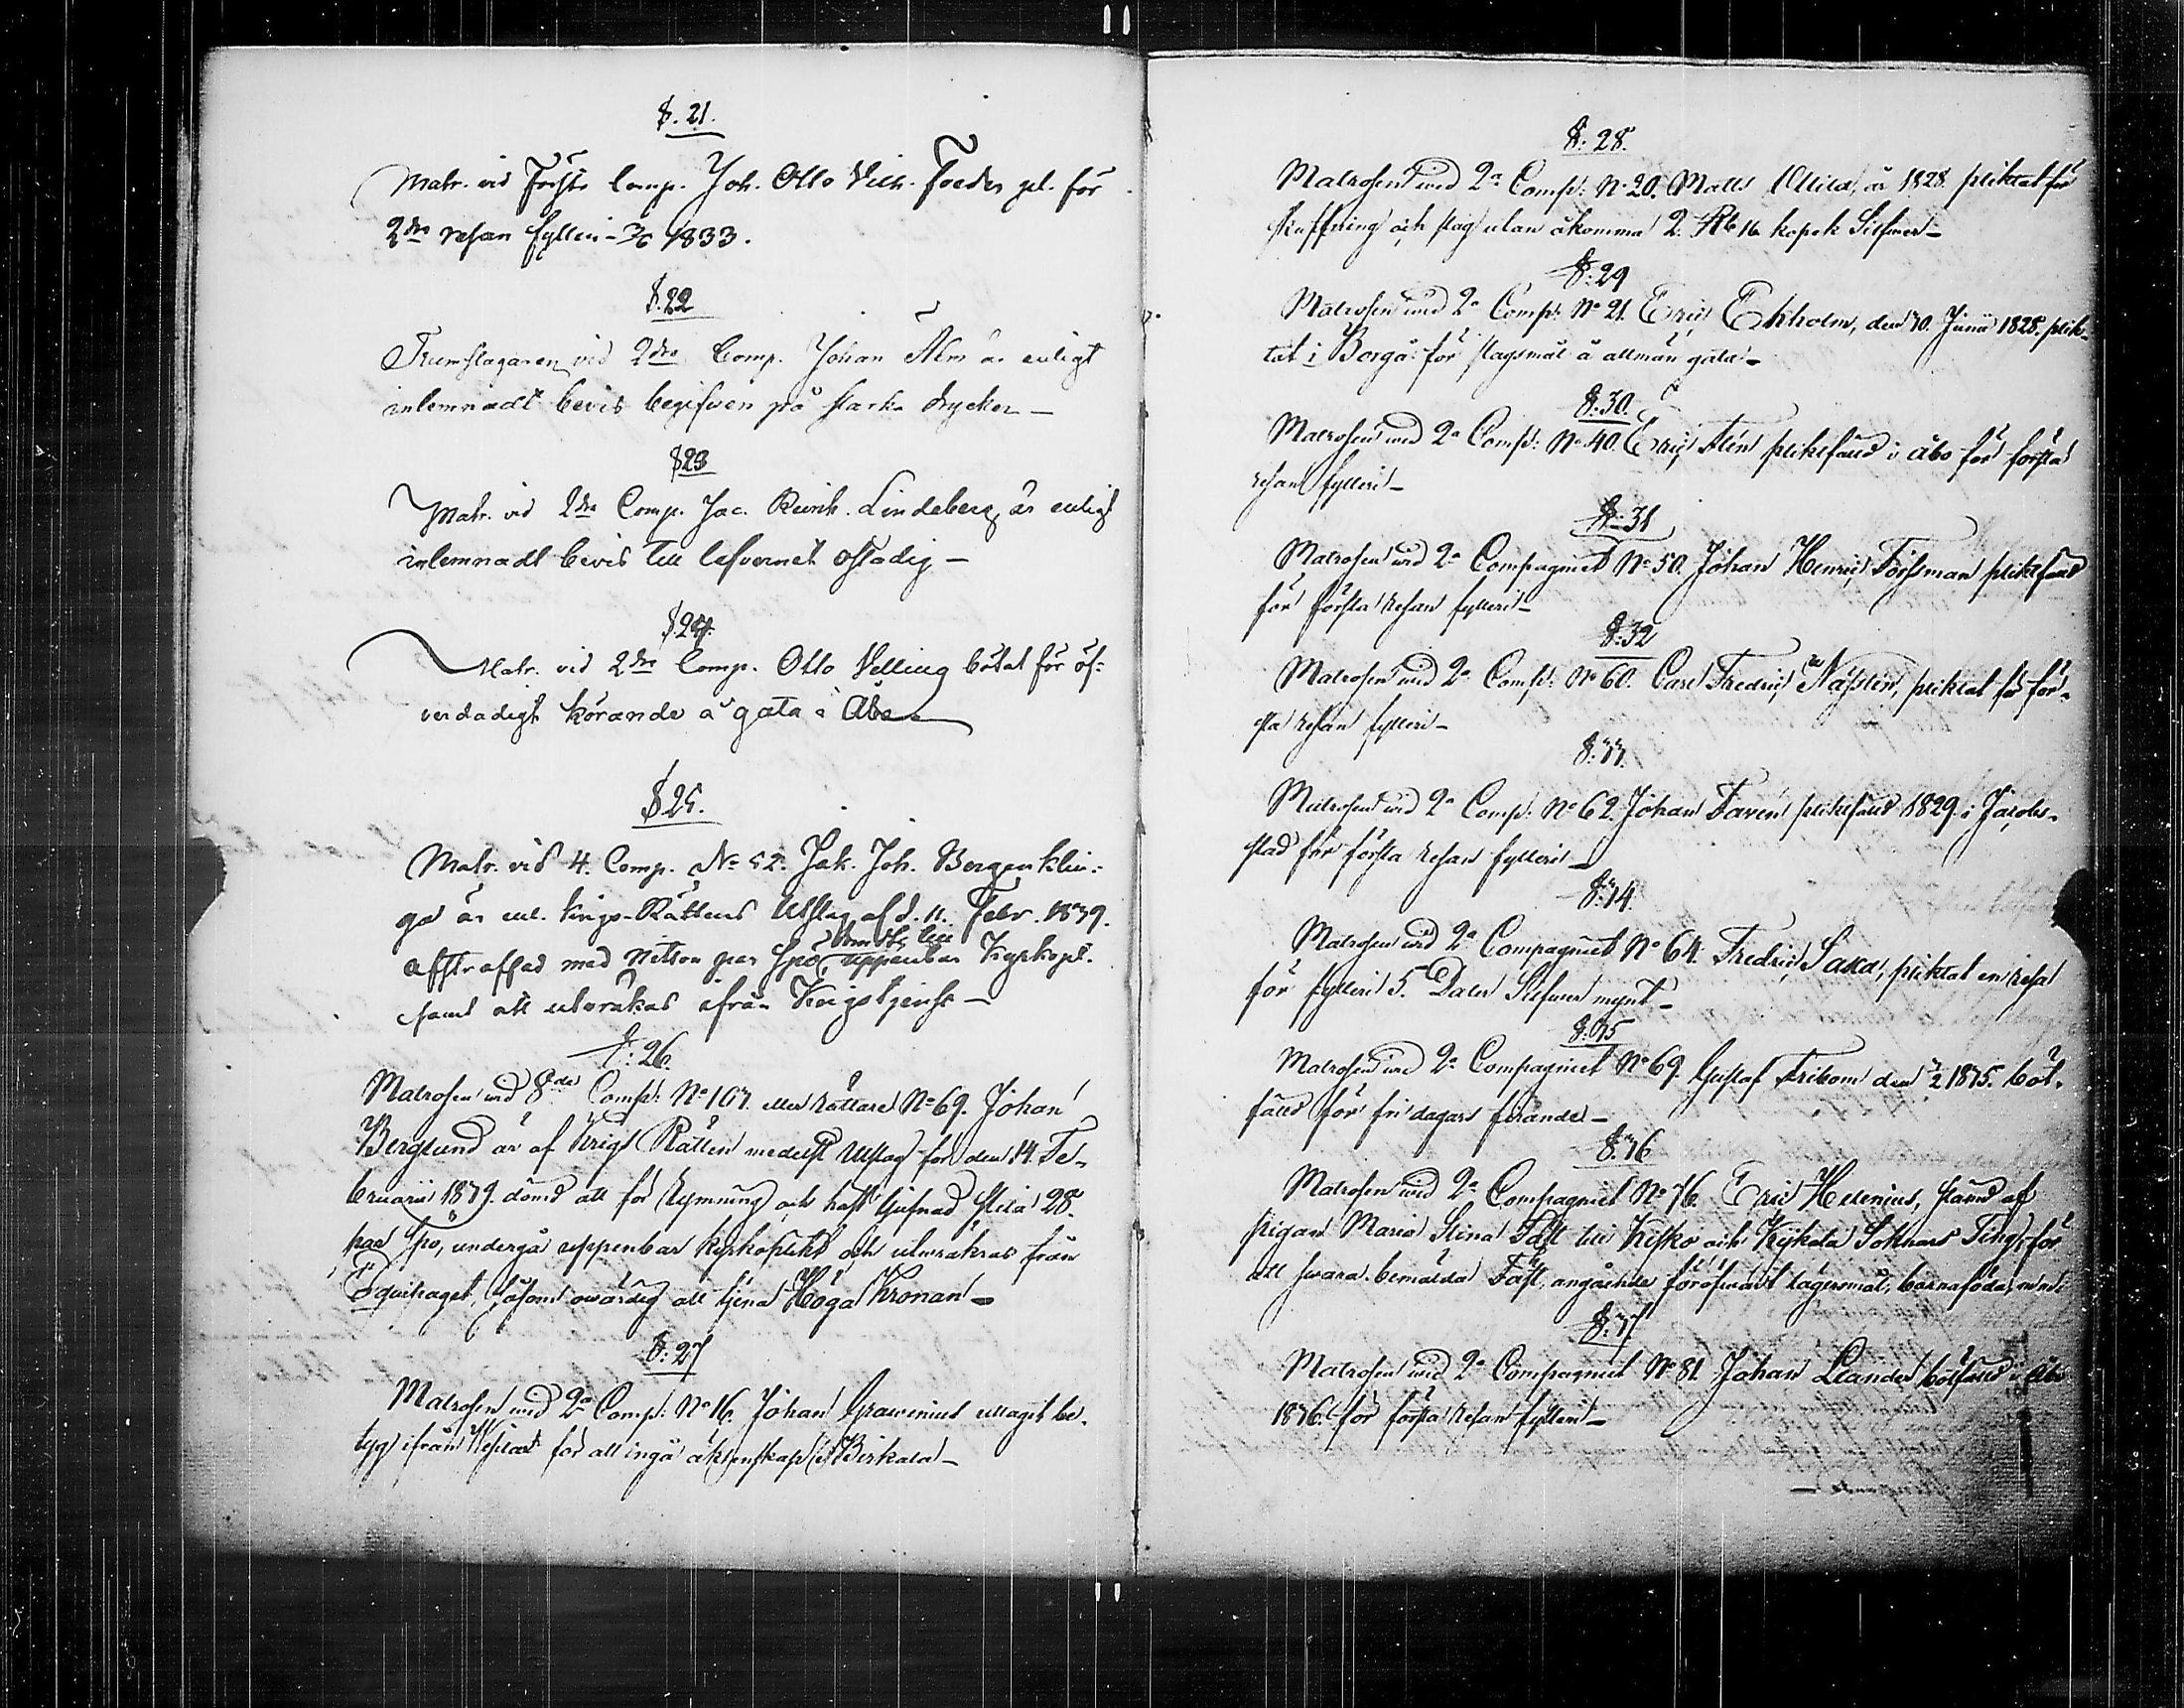 §. 21.
Matr. vid Första Comp. Joh. Otto Vilh. Foeder pl. för
2dra resan fylleri - 1833.
§. 22
Trumslagaren vid 2dra Comp. Johan Alm är enligt
inlemnadt bevis begifven på starka drycker –
§ 23
Matr. vid 2dra Comp. Jac. Reinh. Lindeberg är enligt
inlemnadt bevis till lefvernet ostadig –
§ 24.
Matr. vid 2dra Comp. Otto Velling bötat för öf-
verdådigt körande å gata i Åbo
§ 25.
Matr. vid 4. Comp. No 52. Jak. Joh. Bergenklin-
ga är enl. Krigs-Rättens Utslag af d. 11. Febr. 1839.
afstraffad med Nitton par Spö, dömd till uppenbar Kyrkopl.
samt att utvrakas ifrån Krigstjenst –
§: 26.
Matrosen wid 8de Comp: No 107. eller Rättare No 69. Johan
Berglund är af Krigs Rätten medelst Utslag för den 14. Fe-
bruarii 1839. dömd att för Rymning och haft tjufnad slita 28.
par Spö, undergå uppenbar kyrkoplikt och utwrakas från
Equipaget, såsom owärdig att tjena Höga Kronan –
§: 27
Matrosen wid 2a Comp: No 16. Johan Grawenius uttagit be-
tyg ifrån för att ingå äktenskap i Birkala –
§: 28.
Matrosen wid 2a Comp: No 20. Matts Ollila, är 1828. pliktat för
skuffning och slag utan åkomma 2. Rb 16. kopek Silfwer –
§: 29
Matrosen wid 2a Comp: No 21. Eric Ekholm, den 30. Junii 1828. plik-
tat i Borgå för slagsmål å allmän gata –
§: 30.
Matrosen wid 2a Comp: No 40. Eric Alén pliktfäld i Åbo för första
resan fylleri –
§: 31
Matrosen wid 2a Compagniet No 50. Johan Henric Forssman pliktfäld
för första resan fylleri –
§: 32
Matrosen wid 2a Comp: No 60. Carl Fredric Nässlin, pliktat för för-
sta resan fylleri –
§: 33.
Matrosen wid 2a Comp: No 62. Johan Favén pliktfäld 1829. i Jacobs-
stad för första resan fylleri –
§: 34.
Matrosen wid 2a Compagniet No 64. Fredric Saxa, pliktat en resa
för fylleri 5. Daler Silfwer mynt –
§: 35
Matrosen wid 2a Compagniet No 69. Gustaf Fribom den 1835. böt-
fäld för fri dagars firande –
§: 36
Matrosen wid 2a Compagniet No 76. Eric Helenius, stämd af
pigan Maria Stina Fält till Kisko och Kijkala Soknars Ting, för
att swara bemälda Fält, angående föröfwadt lägersmål, barnaföda, m. m.
§: 37
Matrosen wid 2a Compagniet No 81. Johan Leander bötfäld i Åbo
1836. för första resan fylleri –